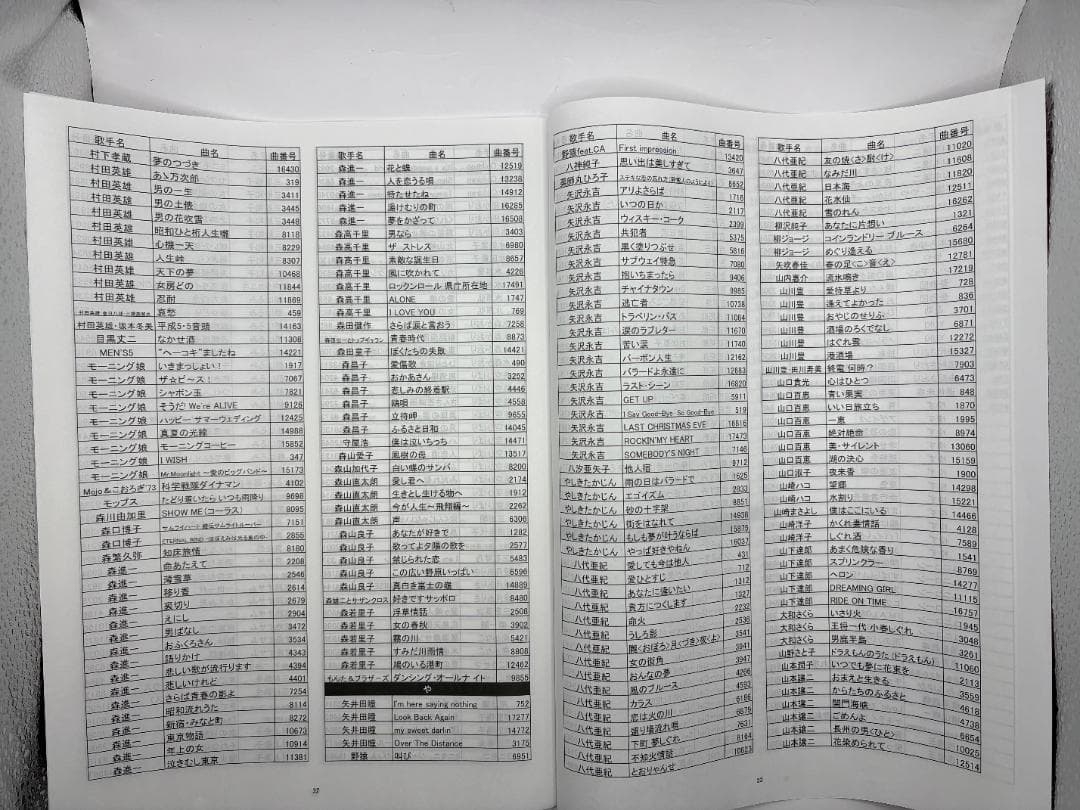 歌手名 曲名 曲番号
村下孝蔵 夢のつづき 16430
村田英雄 あゝ万次郎 319
村田英雄 男の一生 3411
村田英雄 男の土俵 3445
村田英雄 男の花吹雪 3448
村田英雄 昭和ひと桁人生囃 8118
村田英雄 心機一天 8229
村田英雄 人生峠 8307
村田英雄 天下の夢 10468
村田英雄 女房どの 11844
村田英雄 忍耐 11869
哀愁 459
村田英雄・坂本冬美 平成5・5音頭 14163
目黒丈二 なかせ酒 11308
MEN'S5 "ヘーコキ"ましたね 14221
モーニング娘 いきまっしょい! 1917
モーニング娘 ザ☆ピース! 7067
モーニング娘 シャボン玉 7821
モーニング娘 そうだ!We're ALIVE 9126
モーニング娘 ハッピーサマーウェディング 12425
モーニング娘 真夏の光線 14988
モーニング娘 モーニングコーヒー 15852
モーニング娘 I WISH 347
モーニング娘 Mr.Moonlight ～愛のビッグバンド～ 15173
Mojo&こおろぎ'73 科学戦隊ダイナマン 4102
モップス たどり着いたらいつも雨降り 9698
森川由加里 SHOW ME(コーラス) 8095
森口博子 サムライハート 7151
森口博子 ETERNAL WIND 2855
森繁久弥 知床旅情 8180
森進一 命あたえて 2208
森進一 湾雪草 2546
森進一 移り香 2614
森進一 裏切り 2679
森進一 えにし 2904
森進一 男ばなし 3472
森進一 おふくろさん 3534
森進一 語りかけ 4343
森進一 悲しい歌が流行ります 4394
森進一 悲しいけれど 4401
森進一 さらば青春の影よ 7254
森進一 昭和流れうた 8114
森進一 新宿・みなと町 8272
森進一 東京物語 10673
森進一 年上の女 10914
森進一 泣きむし東京 11381
歌手名 曲名 曲番号
森進一 花と蝶 12519
森進一 人を恋うる唄 13238
森進一 待たせたね 14912
森進一 湯けむりの町 16285
森進一 夢をかざって 16508
森高千里 男なら 3403
森高千里 ザ ストレス 6980
森高千里 素敵な誕生日 8657
森高千里 風に吹かれて 4226
森高千里 ロックンロール 県庁所在地 17491
森高千里 ALONE 1747
森高千里 I LOVE YOU 769
森田健作 さらば涙と言おう 7258
青春時代 8873
森田童子 ぼくたちの失敗 14421
森昌子 愛傷歌 490
森昌子 おかあさん 3252
森昌子 悲しみの終着駅 4446
森昌子 陽唄 4558
森昌子 立待岬 9655
森昌子 ふるさと日和 14045
守屋浩 僕は泣いちっち 14471
森山愛子 風樹の母 13517
森山加代子 白い蝶のサンバ 8200
森山直太朗 愛し君へ 2174
森山直太朗 生きとし生ける物へ 1912
森山直太朗 今が人生～飛翔編～ 2262
森山直太朗 声 6306
森山良子 あなたが好きで 1282
森山良子 歌ってよ夕陽の歌を 2577
森山良子 禁じられた恋 5483
森山良子 この広い野原いっぱい 6596
森山良子 真白き富士の嶺 14889
森雄二とサザンクロス 好きですサッポロ 8480
森若里子 浮草情話 2508
森若里子 女の春秋 3902
森若里子 霧の川 5421
森若里子 すみだ川雨情 8808
森若里子 鳩のいる港町 12462
もんた&ブラザーズ ダンシング・オールナイト 9855
や
矢井田瞳 I'm here saying nothing 752
矢井田瞳 Look Back Again 17277
矢井田瞳 my sweet darlin' 14772
矢井田瞳 Over The Distance 3175
野猿 叫び 6951
22
歌手名 曲名 曲番号
野猿feat.CA First impression 13420
八神純子 思い出は美しすぎて 3647
薬師丸ひろ子 8652
矢沢永吉 アリよさらば 1716
矢沢永吉 いつの日か 2117
矢沢永吉 ウィスキー・コーク 2399
矢沢永吉 共犯者 5375
矢沢永吉 黒く塗りつぶせ 5816
矢沢永吉 サブウェイ特急 7080
矢沢永吉 抱いちまったら 9406
矢沢永吉 チャイナタウン 9985
矢沢永吉 逃亡者 10758
矢沢永吉 トラベリン・バス 11084
矢沢永吉 涙のラブレター 11670
矢沢永吉 苦い涙 11740
矢沢永吉 バーボン人生 12162
矢沢永吉 バラードよ永遠に 12683
矢沢永吉 ラスト・シーン 16820
矢沢永吉 GET UP 5911
矢沢永吉 I Say Good-Bye, So Good-Bye 519
矢沢永吉 LAST CHRISTMAS EVE 16816
矢沢永吉 ROCKIN'MY HEART 17473
矢沢永吉 SOMEBODY'S NIGHT 7146
八汐亜矢子 他人宿 9712
やしきたかじん 雨の日はバラードで 1625
やしきたかじん エゴイズム 2833
やしきたかじん 砂の十字架 8851
やしきたかじん 街をはなれて 14938
やしきたかじん もしも夢が叶うならば 15879
やしきたかじん やっぱ好きやねん 16037
八代亜紀 愛しても今は他人 431
八代亜紀 愛ひとすじ 712
八代亜紀 あなたに逢いたい 1212
八代亜紀 貴方につくします 1327
八代亜紀 命火 2232
八代亜紀 うしろ影 2541
八代亜紀 朧<おぼろ>月<づき>夜<よ> 3541
八代亜紀 女の街角 3941
八代亜紀 おんなの夢 3947
八代亜紀 風のブルース 4206
八代亜紀 カラス 4592
八代亜紀 恋は火の川 6186
八代亜紀 酒り場流れ唄 6879
八代亜紀 下町 夢しぐれ 7631
八代亜紀 不知火情話 8164
八代亜紀 とおりゃんせ 10623
歌手名 曲名 曲番号
八代亜紀 友の焼<さ>酎<け> 11020
八代亜紀 なみだ川 11608
八代亜紀 日本海 11820
八代亜紀 花水仙 12511
八代亜紀 雪のれん 16262
柳沢純子 あなたに片想い 1321
柳ジョージ コインランドリー ブルース 6264
柳ジョージ めぐり逢える 15680
矢吹春佳 春の足<こ>音<え> 12781
山内惠介 流氷鳴き 17219
山川豊 愛待草より 728
山川豊 逢えてよかった 836
山川豊 おやじのせりふ 3701
山川豊 酒場のろくでなし 6871
山川豊 はぐれ雲 12272
山川豊 港酒場 15327
山川豊・田川寿美 終電 何時? 7903
山口貴光 心はひとつ 6473
山口百恵 青い果実 848
山口百恵 いい日旅立ち 1870
山口百恵 一恵 1995
山口百恵 絶対絶命 8974
山口百恵 美・サイレント 13060
山口百恵 湖の決心 15159
山口淑子 夜来香 1900
山崎ハコ 望郷 14298
山崎ハコ 水割り 15221
山崎まさよし 僕はここにいる 14466
山崎洋子 かくれ妻情話 4128
山崎洋子 しぐれ酒 7589
山下達郎 あまく危険な香り 1541
山下達郎 スプリンクラー 8769
山下達郎 ヘロン 14277
山下達郎 DREAMING GIRL 11115
山下達郎 RIDE ON TIME 16757
大和さくら いさり火 1945
大和さくら 王将一代 小春しぐれ 3048
大和さくら 男鹿半島 3261
山野さと子 ドラえもんのうた(ドラえもん) 11060
山本潤子 いつでも夢に花束を 2113
山本譲二 おまえと生きる 3559
山本譲二 からたちのふるさと 4618
山本譲二 関門海峡 4738
山本譲二 ごめんよ 6654
山本譲二 長州の男<ひと> 10025
山本譲二 花染められて 12514
22